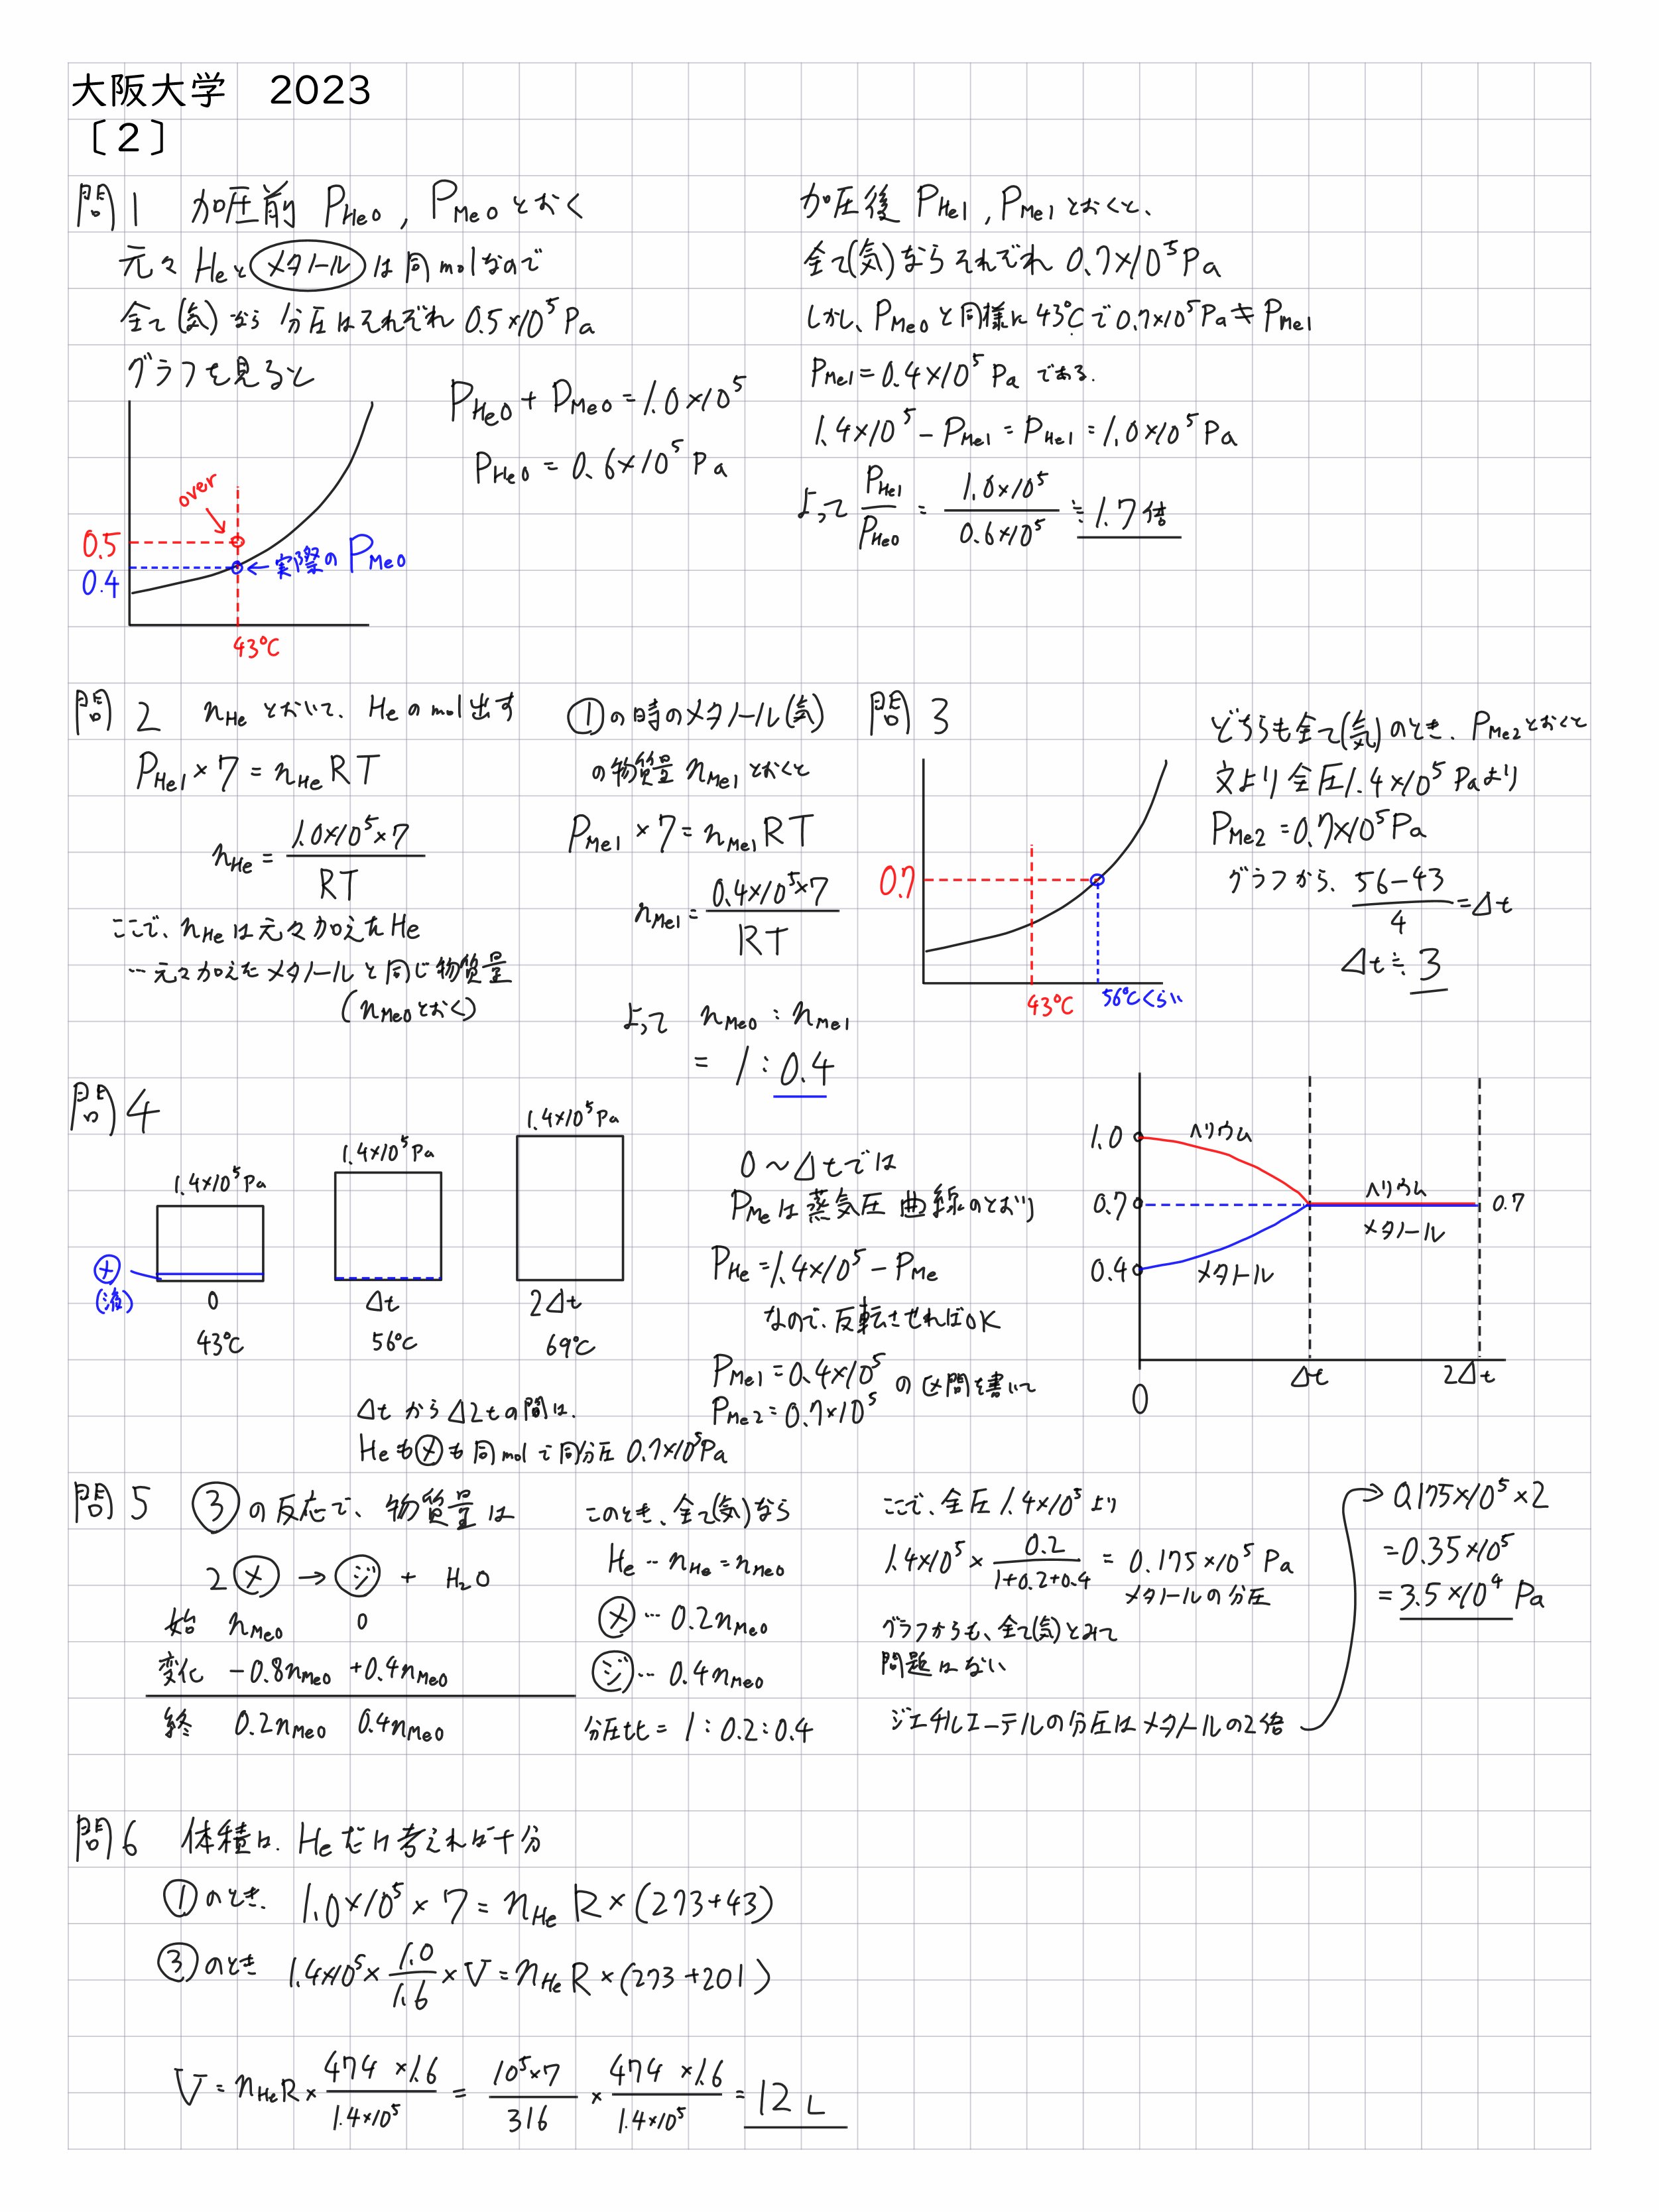 大阪大学 2023
〔2〕
問1 加圧前 P_He0, P_Me0とおく
元々 Heとメタノールは同molなので
全て(気)なら 分圧はそれぞれ 0.5×10^5 Pa
グラフを見ると
P_He0 + P_Me0 = 1.0×10^5
P_He0 = 0.6×10^5 Pa
over
0.5
0.4
←実際の P_Me0
43℃
加圧後 P_He1, P_Me1とおくと、
全て(気)ならそれぞれ 0.7×10^5 Pa
しかし、P_Me0と同様に43℃で0.7×10^5 Pa≠P_Me1
P_Me1=0.4×10^5 Pa である.
1.4×10^5 − P_Me1 = P_He1 = 1.0×10^5 Pa
よって P_He1/P_He0 = 1.0×10^5/0.6×10^5 ≒ 1.7倍
問2 n_Heとおいて、Heのmol出す
P_He1×7 = n_He RT
n_He = 1.0×10^5×7/RT
ここで、n_Heは元々加えたHe
…元々加えたメタノールと同じ物質量
(n_Me0とおく)
①の時のメタノール(気)
の物質量 n_Me1とおくと
P_Me1×7 = n_Me1 RT
n_Me1 = 0.4×10^5×7/RT
よって n_Me0 : n_Me1
= 1 : 0.4
問3
0.7
43℃
56℃くらい
どちらも全て(気)のとき、P_Me2とおくと
文より全圧1.4×10^5 Paより
P_Me2 = 0.7×10^5 Pa
グラフから、56−43/4 = Δt
Δt≒3
問4
1.4×10^5 Pa
1.4×10^5 Pa
1.4×10^5 Pa
メ
(液)
0
Δt
2Δt
43℃
56℃
69℃
Δt から Δ2tの間は、
Heもメも同molで同分圧 0.7×10^5 Pa
0〜Δtでは
P_Meは蒸気圧曲線のとおり
P_He = 1.4×10^5 − P_Me
なので、反転させればOK
P_Me1=0.4×10^5
P_Me2=0.7×10^5
の区間を書いて
1.0
ヘリウム
0.7
ヘリウム
0.7
メタノール
0.4
メタノール
0
Δt
2Δt
問5 ③の反応で、物質量は
2メ → ジ + H2O
始 n_Me0 0
変化 −0.8n_Me0 +0.4n_Me0
終 0.2n_Me0 0.4n_Me0
このとき、全て(気)なら
He … n_He = n_Me0
メ … 0.2n_Me0
ジ … 0.4n_Me0
分圧比 = 1 : 0.2 : 0.4
ここで、全圧1.4×10^5より
1.4×10^5 × 0.2/1+0.2+0.4 = 0.175×10^5 Pa
メタノールの分圧
グラフからも、全て(気)とみて
問題はない
ジエチルエーテルの分圧はメタノールの2倍
→ 0.175×10^5×2
=0.35×10^5
=3.5×10^4 Pa
問6 体積は、Heだけ考えれば十分
①のとき、1.0×10^5×7 = n_He R×(273+43)
③のとき 1.4×10^5×1.0/1.6×V = n_He R×(273+201)
V = n_He R × 474×1.6/1.4×10^5 = 10^5×7/316 × 474×1.6/1.4×10^5 = 12 L